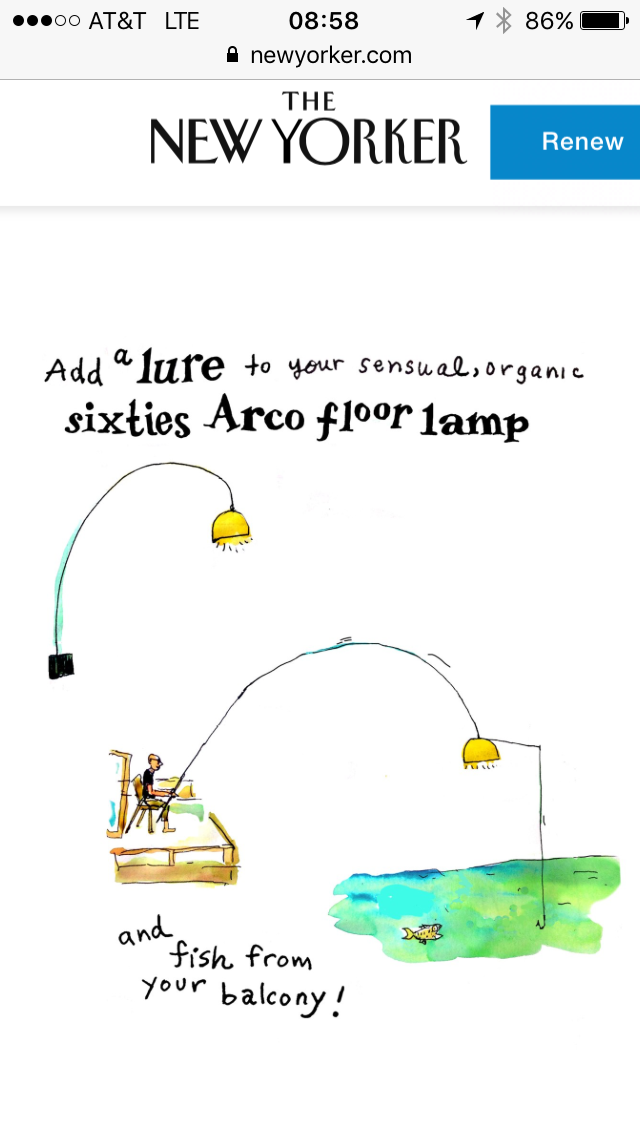 AT&T LTE 08:58 86%
newyorker.com
THE
NEW YORKER
Renew
Add a lure to your sensual, organic
sixties Arco floor lamp
and
fish from
your balcony!